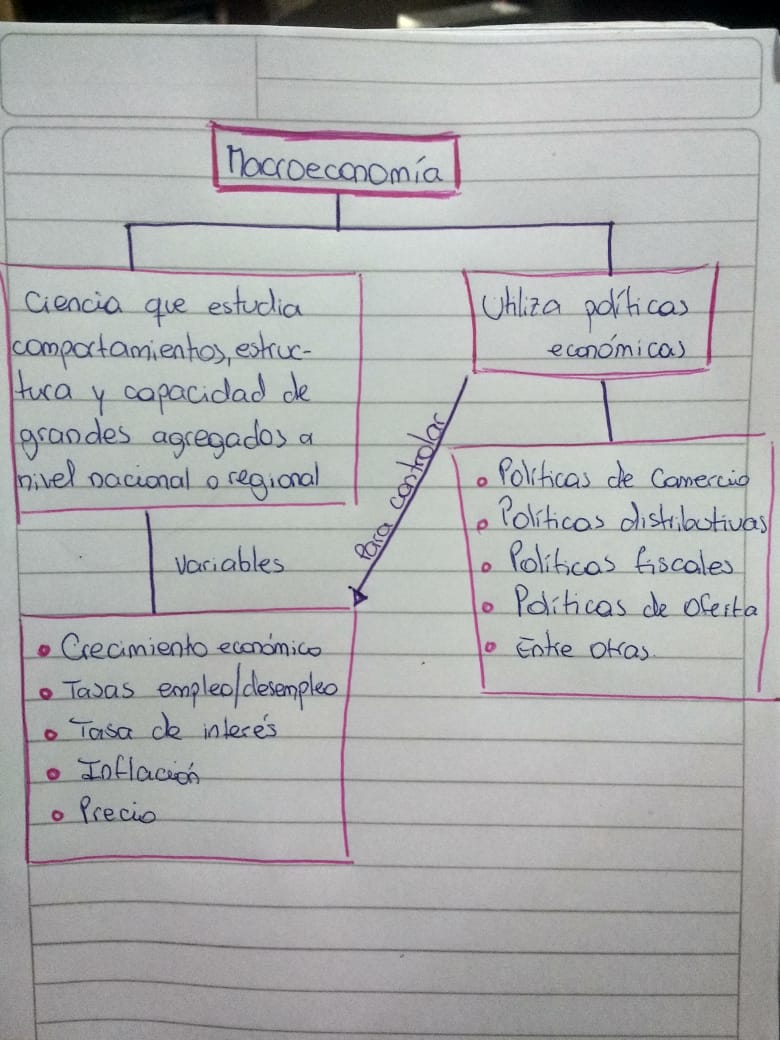 Macroeconomía
Ciencia que estudia
comportamientos, estruc-
tura y capacidad de
grandes agregados a
nivel nacional o regional
Utiliza políticas
económicas
Para controlar
• Políticas de Comercio
• Políticas distributivas
• Políticas fiscales
• Políticas de Oferta
• Entre otras.
Variables
• Crecimiento económico
• Tasas empleo/desempleo
• Tasa de interés
• Inflación
• Precio